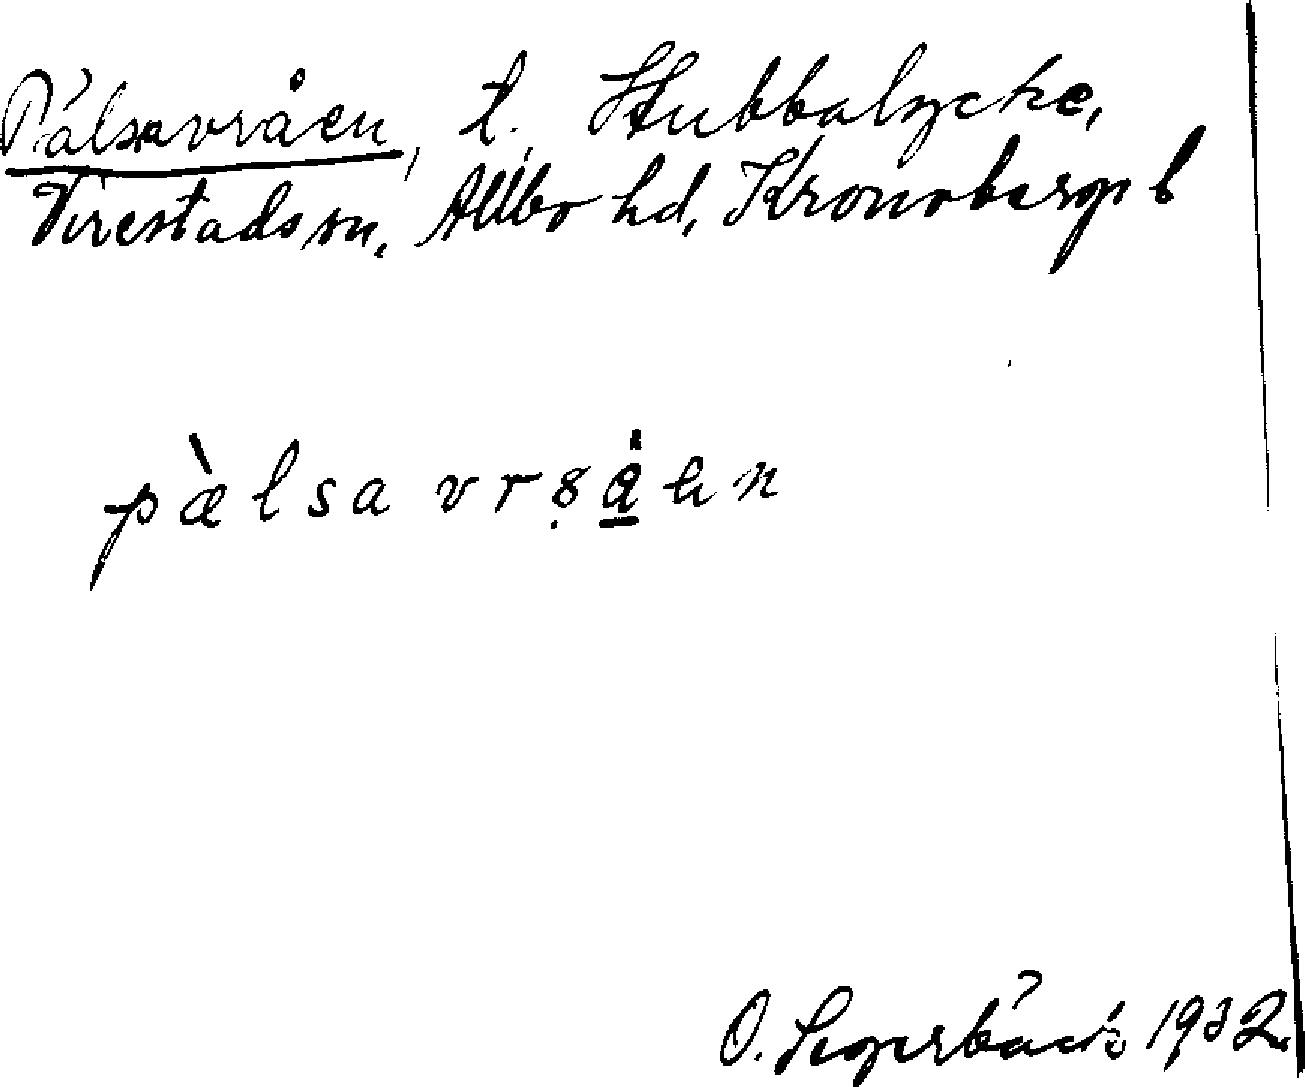 Pälsavråen, t. Stubbalycke,
Virestads sn, Allbo hd, Kronobergs l
pàlsa vrså en
O. Segerbäck 1932.